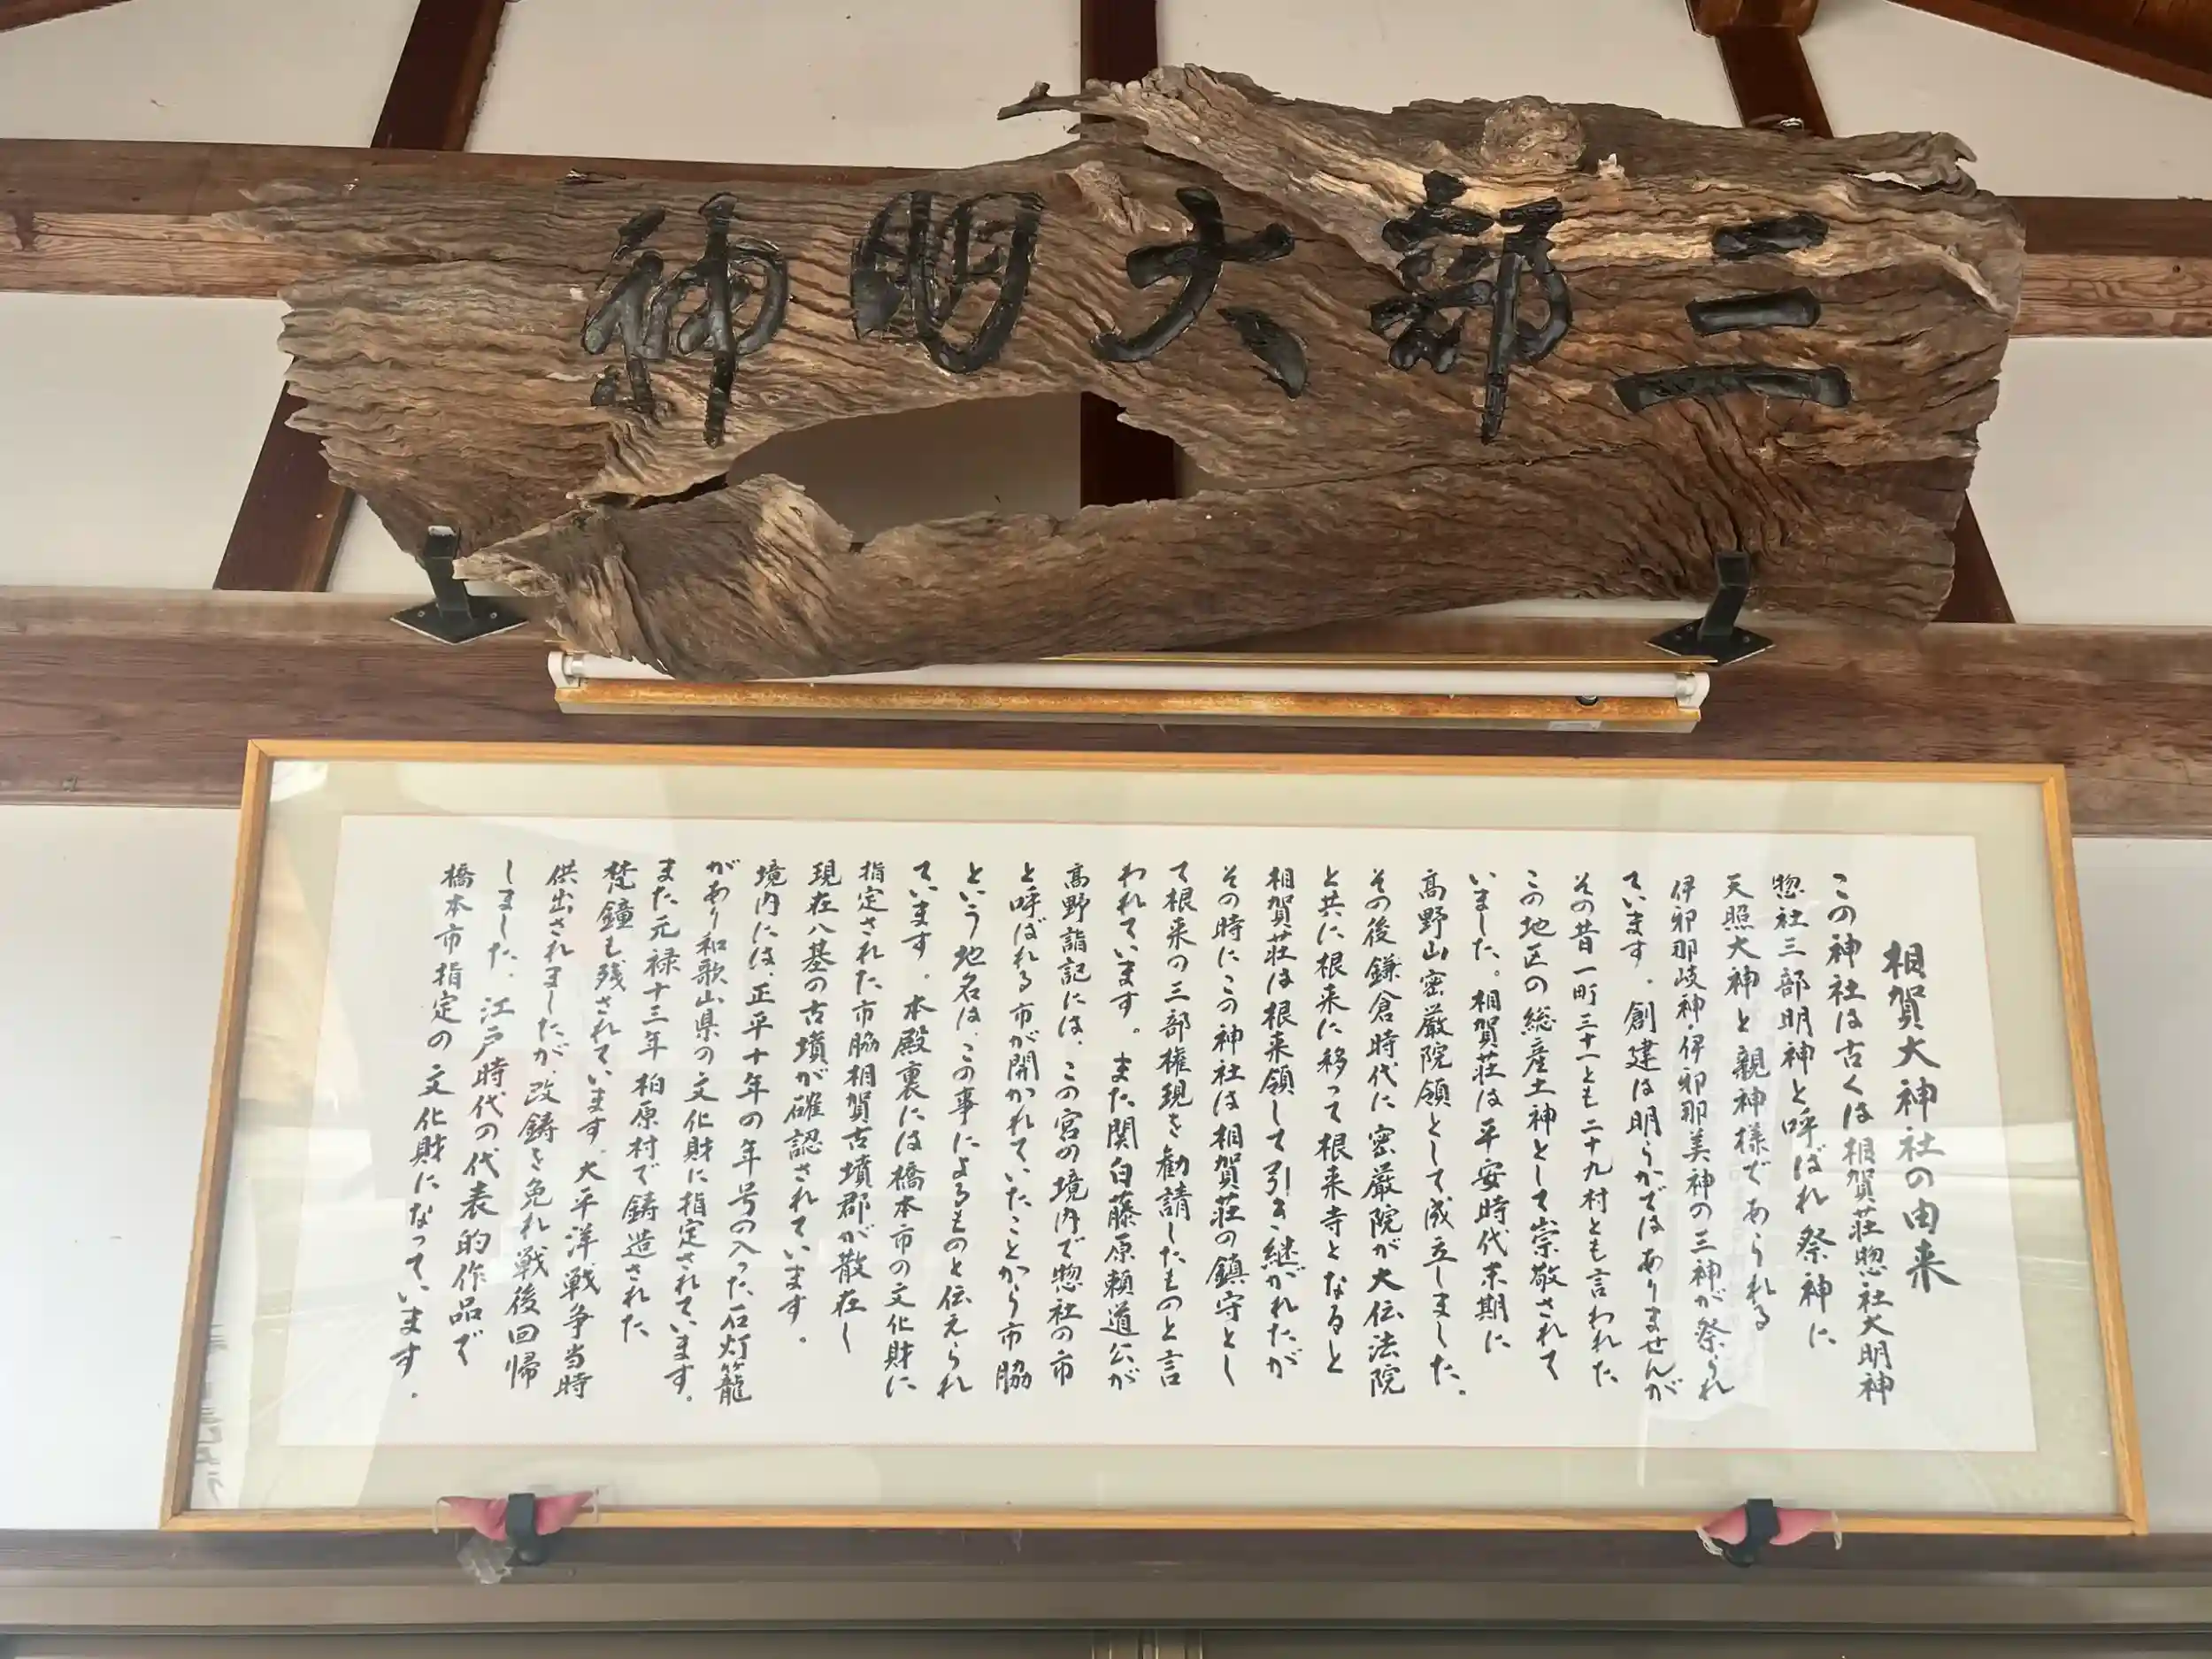 三部大明神
相賀大神社の由来
この神社は古くは相賀荘惣社大明神
惣社三部明神と呼ばれ祭神に
天照大神と親神様であられる
伊邪那岐神・伊邪那美神の三神が祭られ
ています。創建は明らかではありませんが
その昔一町三十一とも二十九村とも言われた
この地区の総産土神として崇敬されて
いました。相賀荘は平安時代末期に
高野山密厳院領として成立しました。
その後鎌倉時代に密厳院が大伝法院
と共に根来に移って根来寺となると
相賀荘は根来領して引き継がれたが
その時にこの神社は相賀荘の鎮守とし
て根来の三部権現を勧請したものと言
われています。また関白藤原頼道公が
高野詣記には、この宮の境内で惣社の市
と呼ばれる市が開かれていたことから市脇
という地名は、この事によるものと伝えられ
ています。本殿裏には橋本市の文化財に
指定された市脇相賀古墳郡が散在し
現在八基の古墳が確認されています。
境内には、正平十年の年号の入った石灯籠
があり和歌山県の文化財に指定されています。
また元禄十三年柏原村で鋳造された
梵鐘も残されています。大平洋戦争当時
供出されましたが、改鋳を免れ戦後回帰
しました。江戸時代の代表的作品で
橋本市指定の文化財になっています。